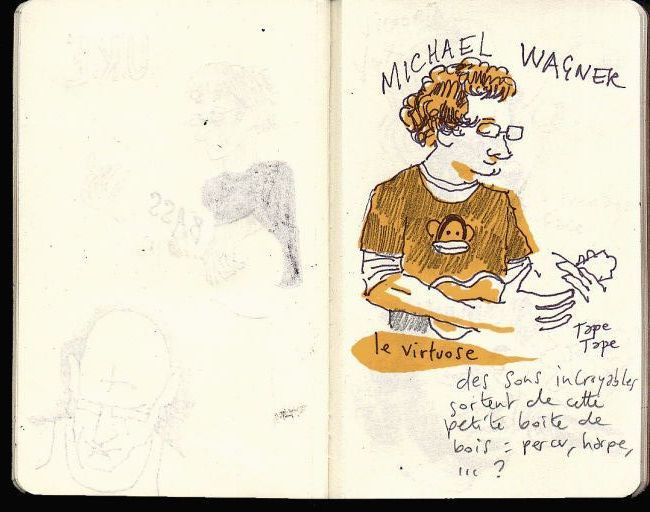 MICHAEL WAGNER
Tape
Tape
le virtuose
des sons incroyables
sortent de cette
petite boîte de
bois : percu, harpe,
... ?